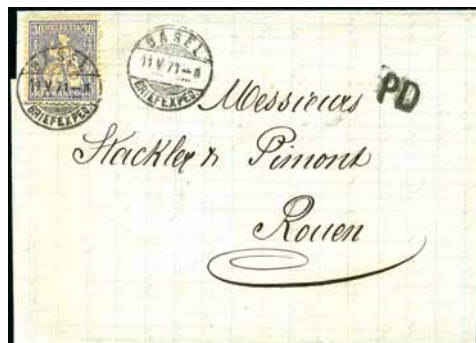 30 HELVETIA 30
FRANCO
BASEL
11 V 71
BRIEFEXPED.
BASEL
11 V 71
BRIEFEXPED.
PD
Messieurs
Stackler & Pimont
Rouen